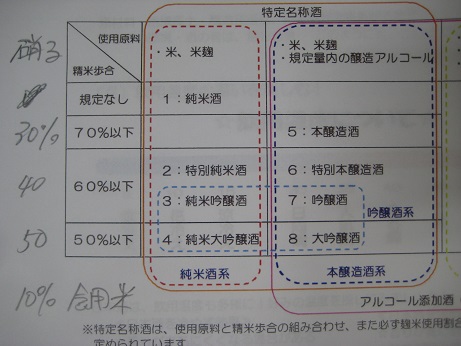 特定名称酒
使用原料
精米歩合
・米、米麹
・米、米麹
・規定量内の醸造アルコール
規定なし
1:純米酒
30%
70%以下
5:本醸造酒
40
60%以下
2:特別純米酒
6:特別本醸造酒
3:純米吟醸酒
7:吟醸酒
吟醸酒系
50
50%以下
4:純米大吟醸酒
8:大吟醸酒
純米酒系
本醸造酒系
10%
アルコール添加酒
※特定名称酒は、使用原料と精米歩合の組み合わせ、また必ず麹米使用割合
定められています